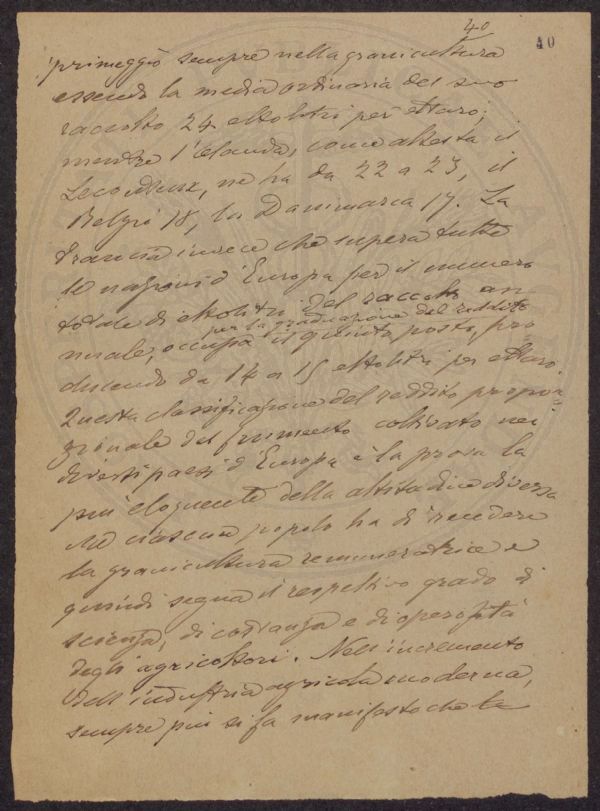 40
40
primeggiò sempre nella granicultura
essendo la media ordinaria del suo
raccolto 24 ettolitri per ettaro;
mentre l'Olanda, come attesta il
Lecouteux, ne ha da 22 a 23, il
Belgio 18, la Danimarca 17. La
Francia invece che supera tutte
le nazioni d'Europa per il numero
totale di ettolitri del raccolto an
per la graduazione del reddito
nuale, occupa il quinto posto, pro
ducendo da 14 a 15 ettolitri per ettaro.
Questa classificazione del reddito propor
zionale del frumento coltivato nei
diversi paesi d'Europa è la prova la
più eloquente della attitudine diversa
che ciascun popolo ha di rendere
la granicultura remuneratrice e
quindi segna il respettivo grado di
scienza, di costanza e di operosità
degli agricoltori. Nell'incremento
dell'industria agricola moderna,
sempre più si fa manifesto che la